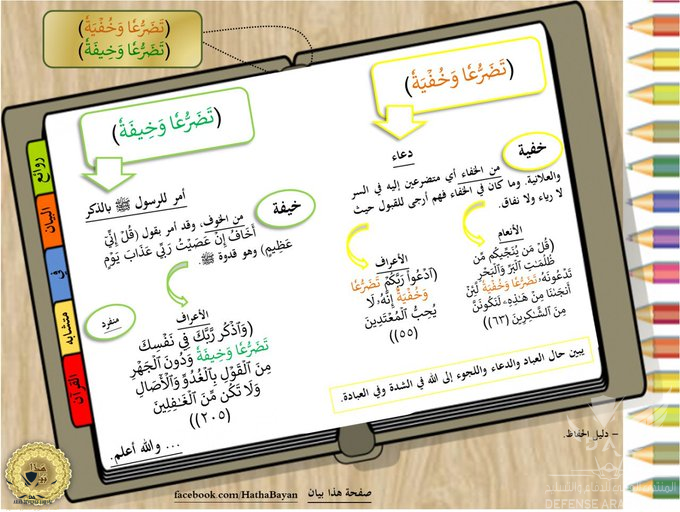 (تَضَرُّعًا وَخُفْيَةً)
(تَضَرُّعًا وَخِيفَةً)
(تَضَرُّعًا وَخُفْيَةً)
دعاء
خفية
من الخفاء أي متضرعين إليه في السر
والعلانية. وما كان في الخفاء فهم أرجى للقبول حيث
لا رياء ولا نفاق.
الأنعام
(قُلْ مَن يُنَجِّيكُم مِّن
ظُلُمَٰتِ ٱلْبَرِّ وَٱلْبَحْرِ
تَدْعُونَهُۥ تَضَرُّعًا وَخُفْيَةً لَّئِنْ
أَنجَىٰنَا مِنْ هَٰذِهِۦ لَنَكُونَنَّ
مِنَ ٱلشَّٰكِرِينَ (٦٣))
الأعراف
(ٱدْعُوا۟ رَبَّكُمْ تَضَرُّعًا
وَخُفْيَةً إِنَّهُۥ لَا
يُحِبُّ ٱلْمُعْتَدِينَ
(٥٥))
يبين حال العباد والدعاء واللجوء إلى الله في الشدة وفي العبادة.
(تَضَرُّعًا وَخِيفَةً)
أمر للرسول ﷺ بالذكر
خيفة
من الخوف، وقد أمر بقول (قُلْ إِنِّي
أَخَافُ إِنْ عَصَيْتُ رَبِّي عَذَابَ يَوْمٍ
عَظِيمٍ) وهو قدوة ﷺ.
الأعراف
منفرد
(وَٱذْكُر رَّبَّكَ فِي نَفْسِكَ
تَضَرُّعًا وَخِيفَةً وَدُونَ ٱلْجَهْرِ
مِنَ ٱلْقَوْلِ بِٱلْغُدُوِّ وَٱلْءَاصَالِ
وَلَا تَكُن مِّنَ ٱلْغَٰفِلِينَ
(٢٠٥))
... والله أعلم.
روائع
البيان
في
متشابه
القرآن
– دليل الحفاظ.
هذا
بيان
صفحة هذا بيان facebook.com/HathaBayan
DEFENSE ARA